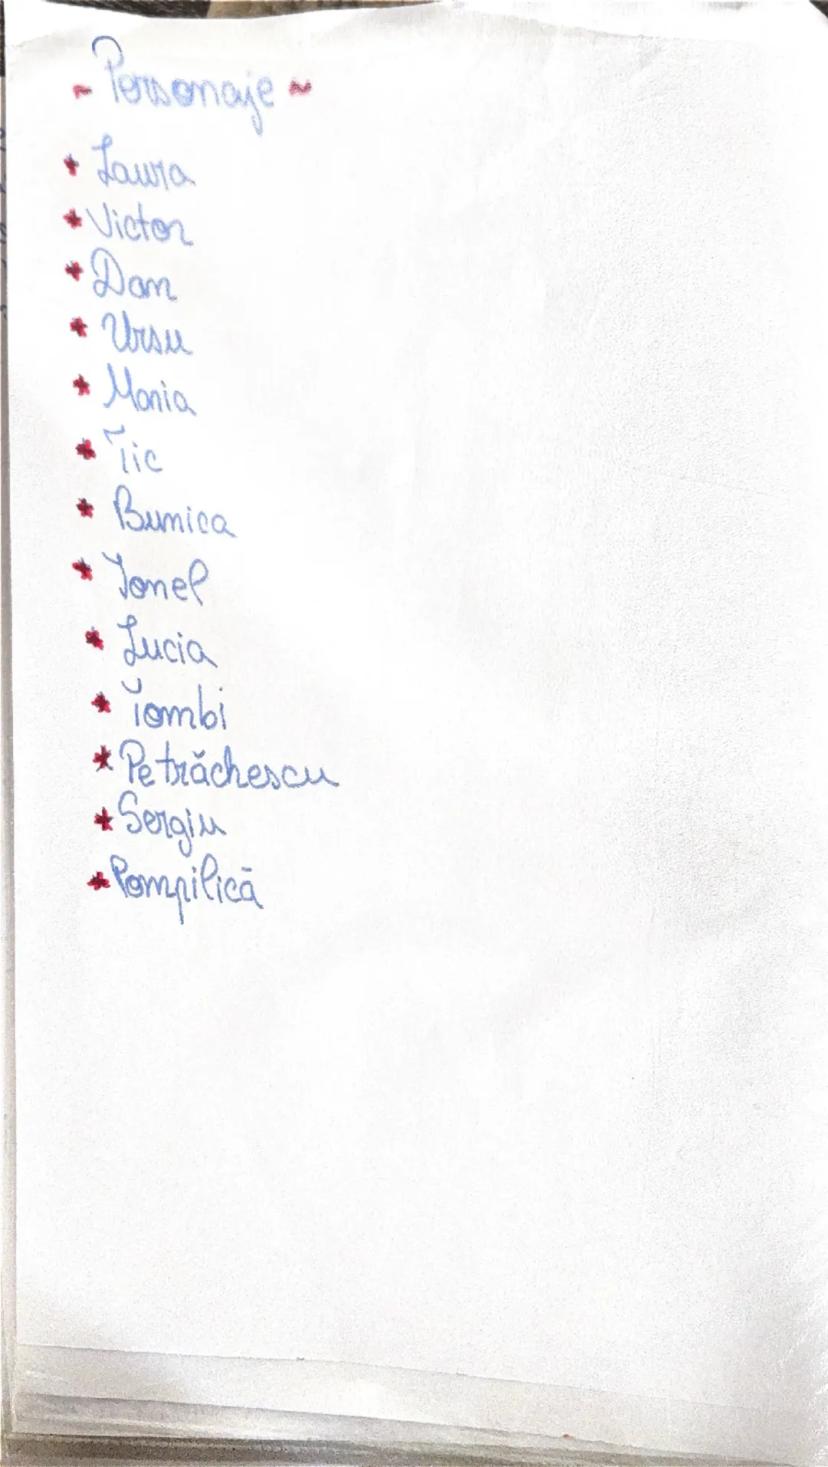 ~ Personaje ~
* Laura
* Victor
* Dan
* Ursu
* Maria
* Tic
* Bunica
* Ionel
* Lucia
* Tombi
* Petrăchescu
* Sergiu
* Pompilică